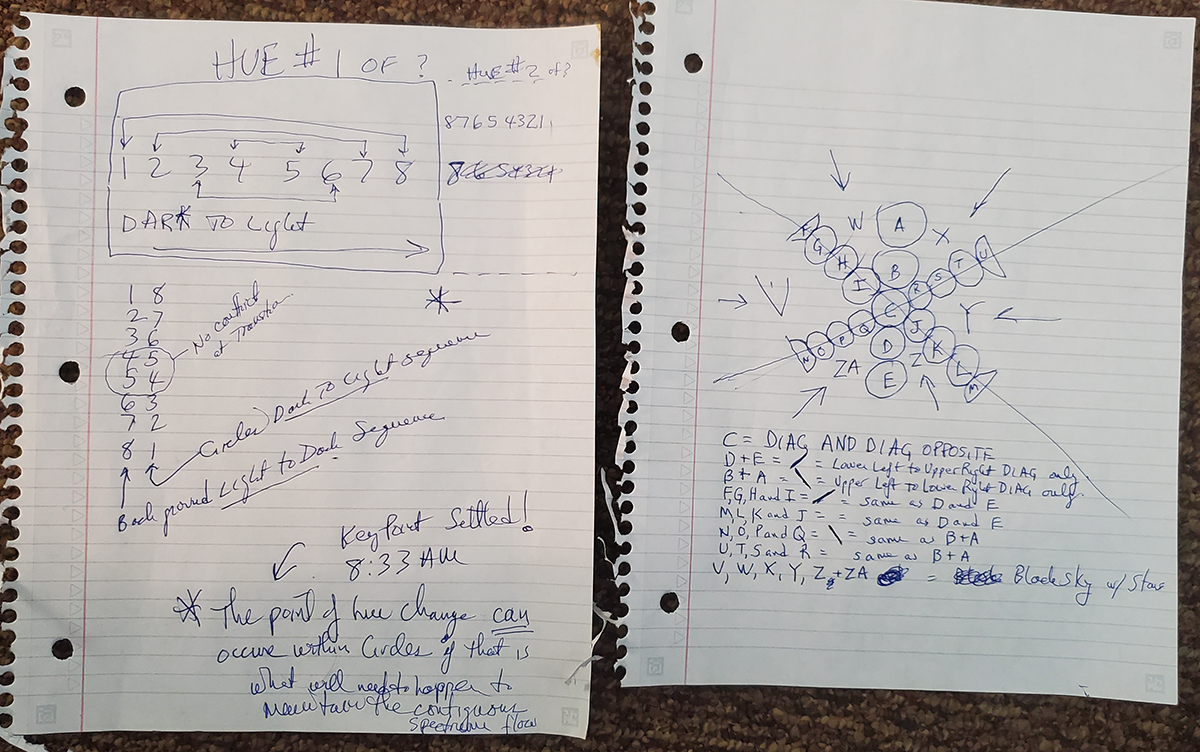 HUE # 1 OF ?
HUE # 2 of ?
87654321
1 2 3 4 5 6 7 8
DARK TO Light
1 8
2 7
3 6
4 5
5 4
6 3
7 2
8 1
No conflict
at Transition
Circles) Dark To Light sequence
Background Light to Dark Sequence
Key Point Settled!
8:33 AM
* The point of hue change can
occur within Circles if that is
what will need to happen to
maintain the contiguous
spectrum flow
W A X
F G H I B R S T U
V C Y
N O P Q D J K L M
ZA E Z
C = DIAG AND DIAG OPPOSITE
D + E = / = Lower Left to Upper Right DIAG only
B + A = \ = Upper Left to Lower Right DIAG only.
F, G, H and I = / = same as D and E
M, L, K and J = = same as D and E
N, O, P and Q = \ = same as B + A
U, T, S and R = same as B + A
V, W, X, Y, Z, + ZA = Black Sky w/ Stars